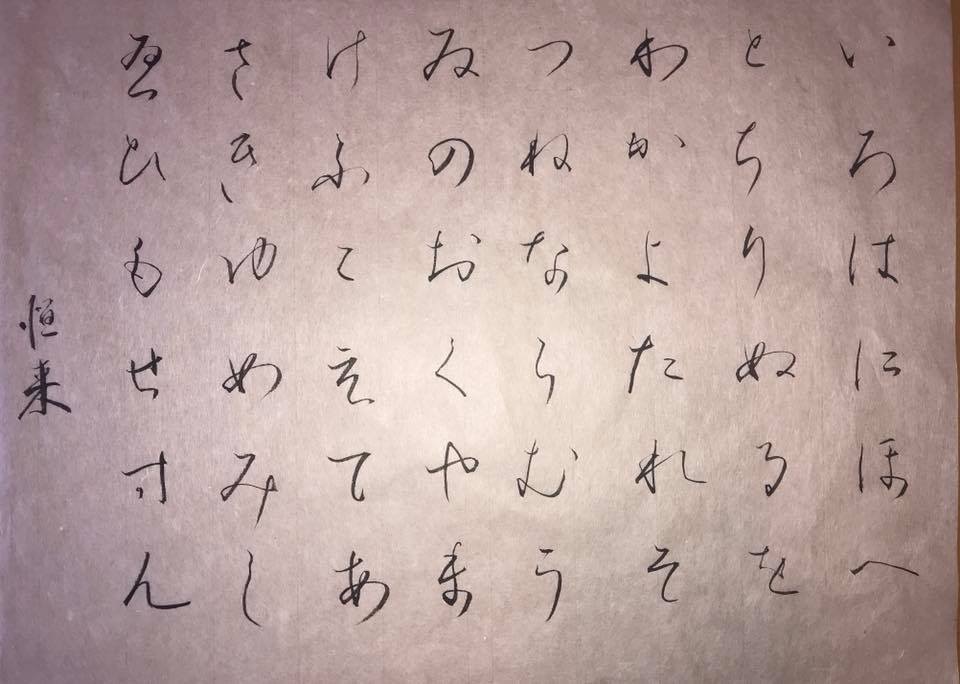 いろはにほへ
とちりぬるを
わかよたれそ
つねならむう
ゐのおくやま
けふこえてあ
さきゆめみし
ゑひもせすん
恒来